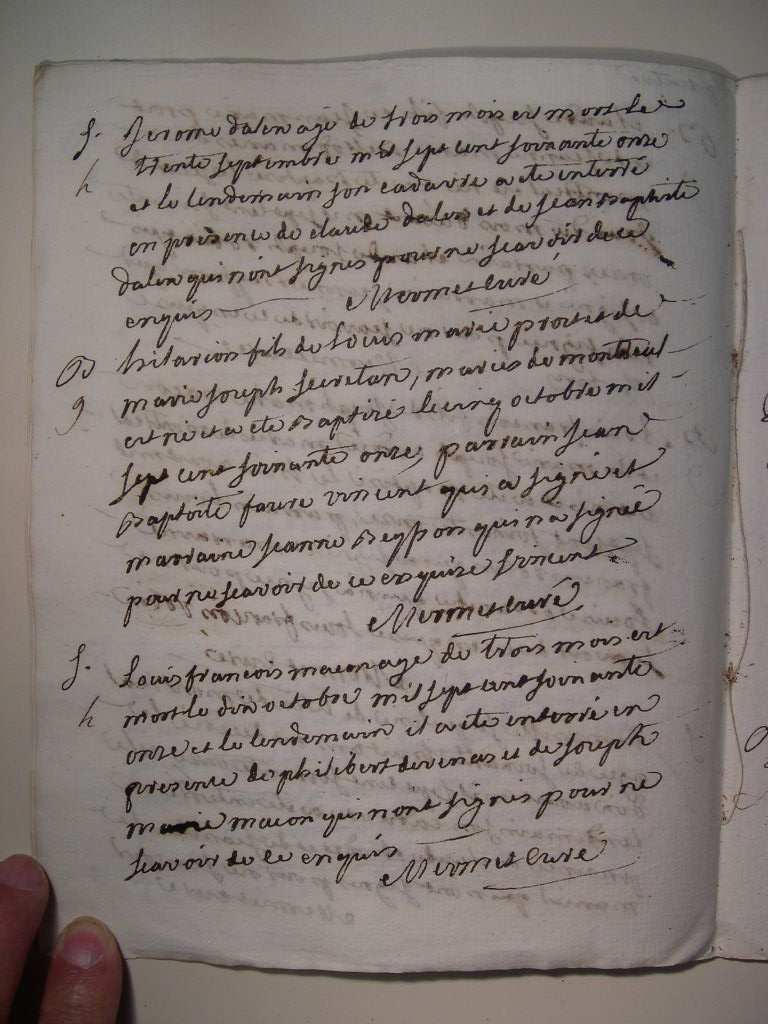 S. Jerome dalen agé de trois mois est mort le
h trente septembre mil sept cent soixante onze
et le lendemain son cadavre a ete enterré
en presence de claude dalen et de Jean Baptiste
dalen qui n'ont signés pour ne scavoir de ce
enquis Mermet curé
B hilarion fils de Louis marie prost et de
9 marie Joseph secretan, mariés de
est né et a ete Baptizé le cinq octobre mil
sept cent soixante onze, parrain Jean
Baptiste faure vincent qui a signé et
marraine Jeanne qui n'a signée
pour ne scavoir de ce enquise f vincent
Mermet curé
S. Louis francois macon agé de trois mois est
h mort le dix octobre mil sept cent soixante
onze et le lendemain il a ete enterré en
presence de philibert devenas et de Joseph
marie macon qui n'ont signés pour ne
scavoir de ce enquis Mermet curé